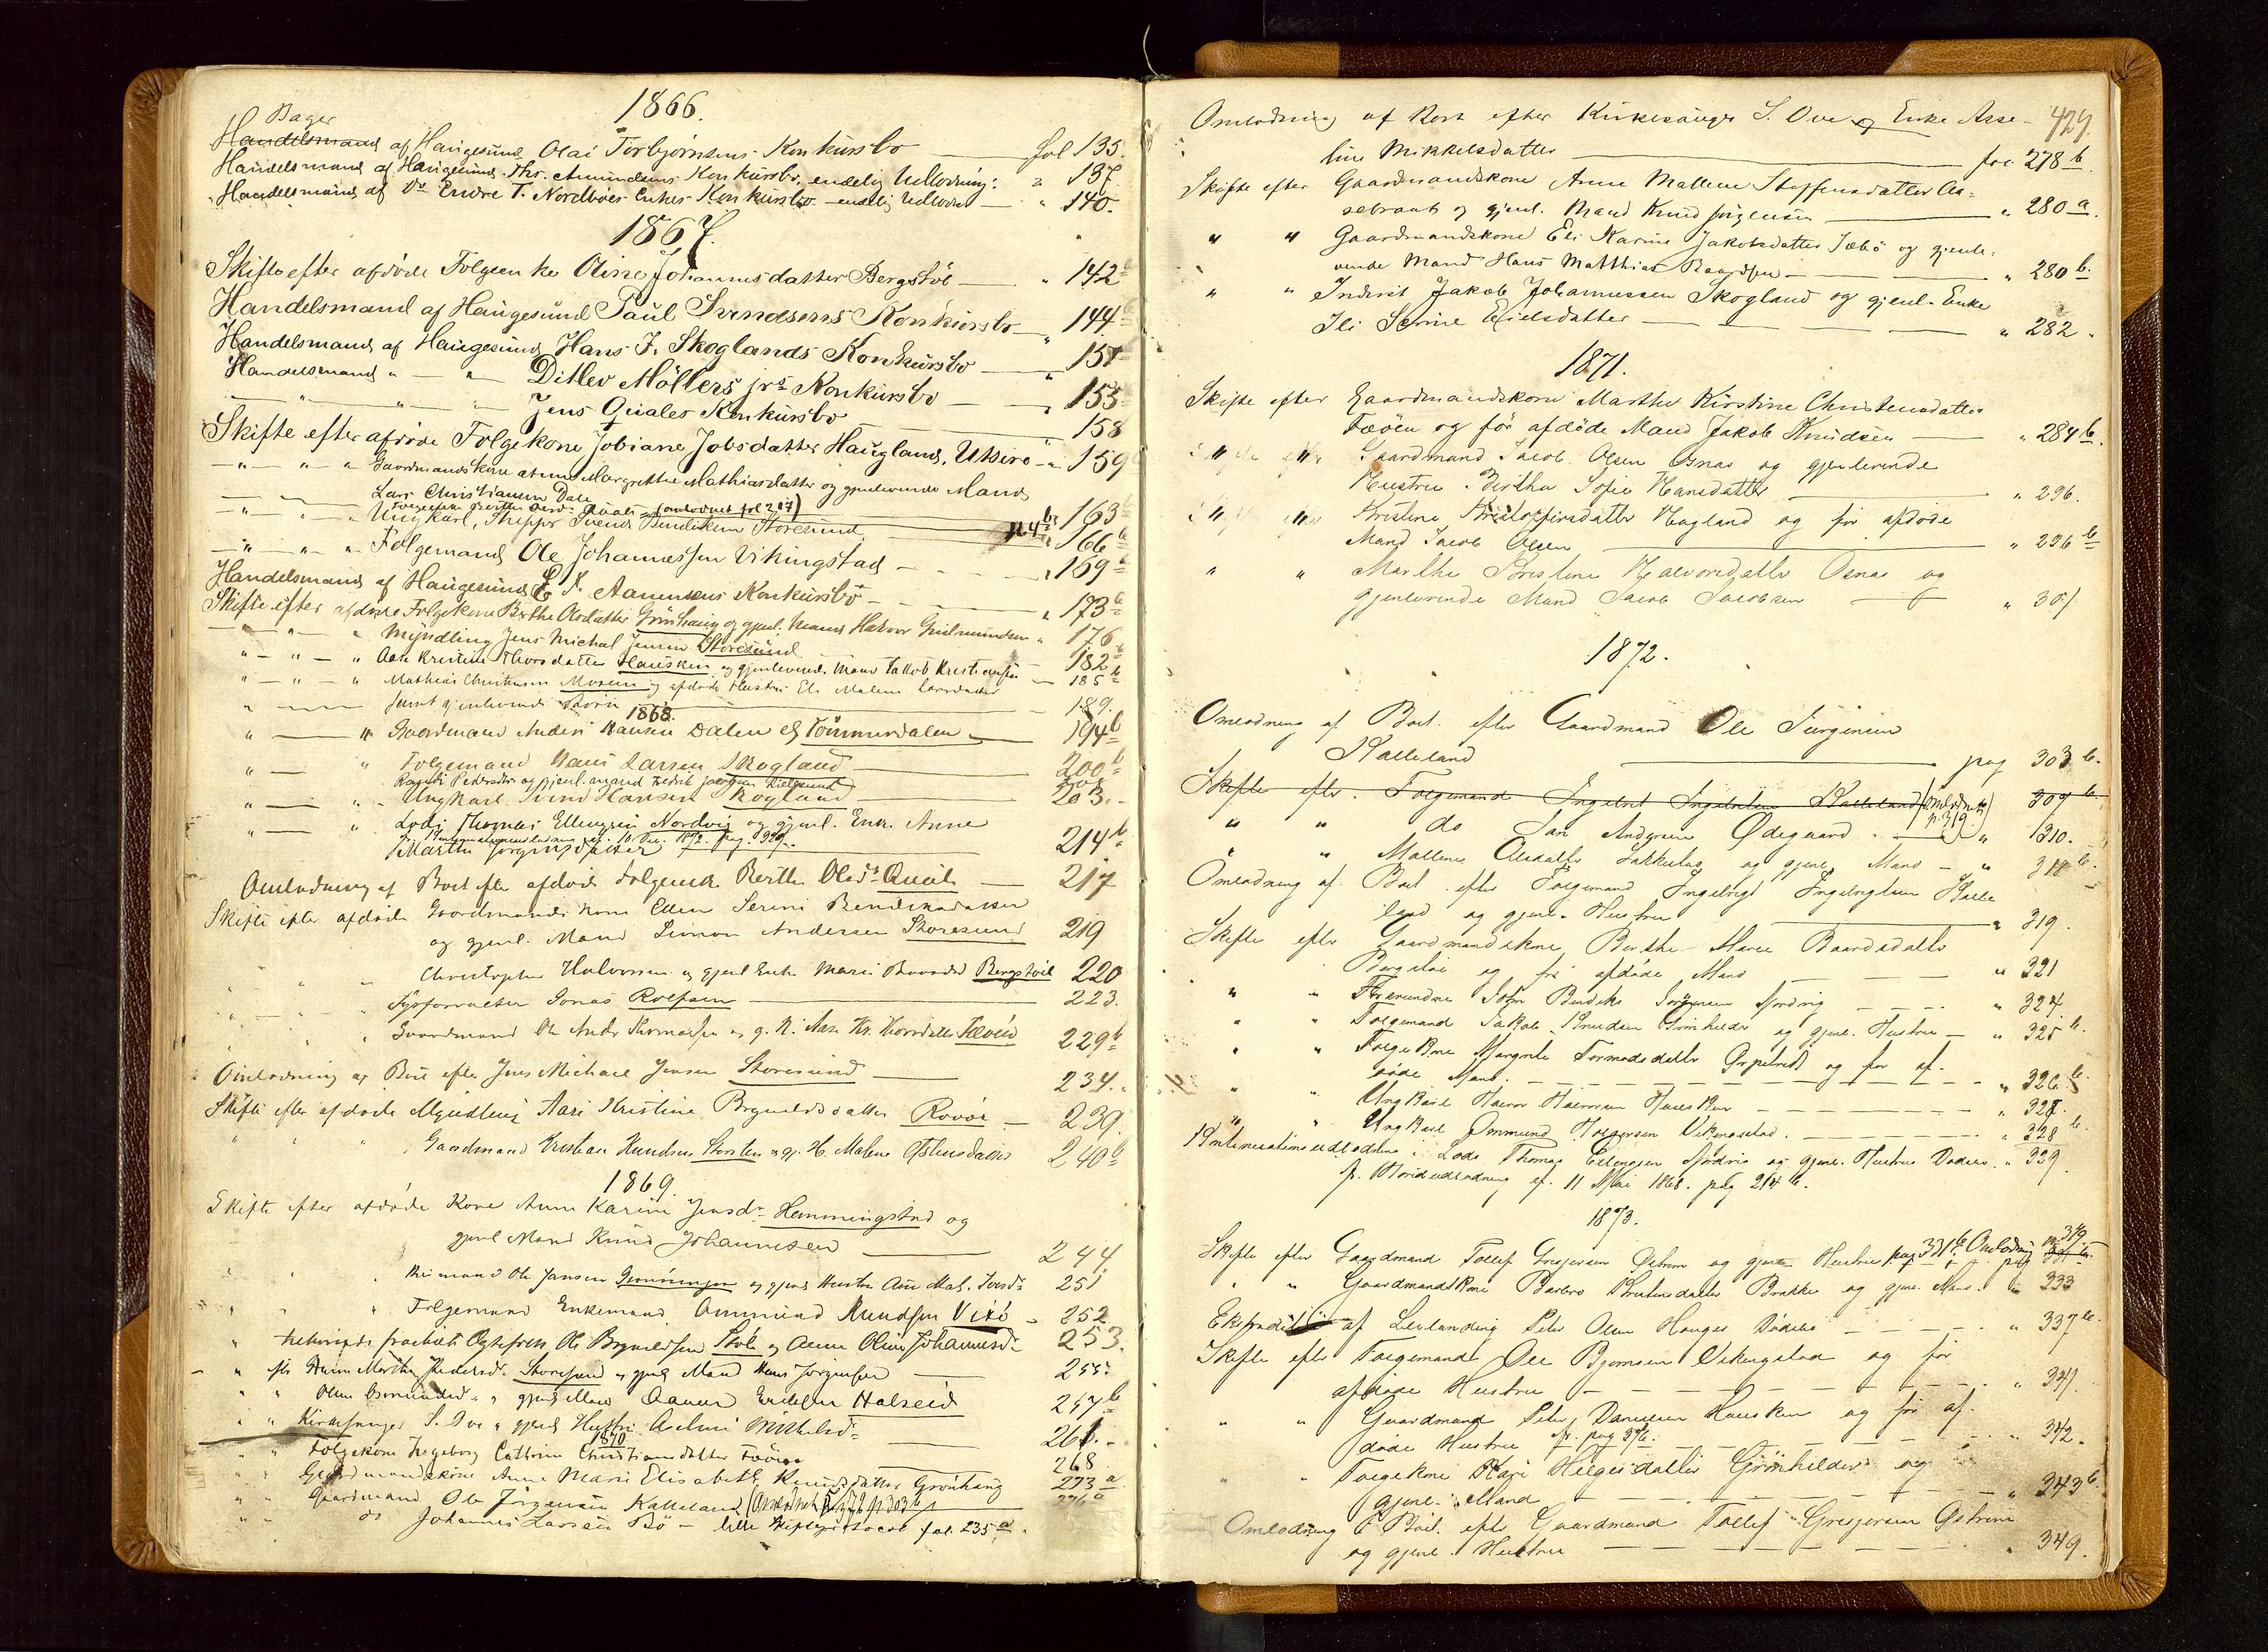 1866.
Bager
Handelsmand af Haugesund Olai Torbjørnsens Konkursbo fol 135.
Handelsmand af Haugesund Ths. Amundsens Konkursbo, endelig Udlodning: " 137.
Handelsmand af Do Endre T. Nordbøes Enkes Konkursbo endelig Udlodn " 140.
1867.
Skifte efter afdøde Folgeenke Oline Johannesdatter Bergstøl " 142
Handelsmand af Haugesund Paul Svendsens Konkursbo " 144
Handelsmand af Haugesund Hans J. Skoglands Konkursbo " 151
Handelsmand " " Ditlev Möllers jrs Konkursbo " 155
" " " Jens Qvales Konkursbo " 158
Skifte efter afdøde Folgekone Jobiane Jobsdatter Haugland, Utsire " 159
" " " Gaardmandskone Margrethe Mathiasdatter og gjenlevende Mand
Lars Christiansen Dale 163
(omlodnet fol 217)
" " " Ungkarl, Skipper Svend Bendiksen Storesund " 166
" " " Folgemand Ole Johannessen Vikingstad " 169
Handelsmand af Haugesund E. T. Aanensens Konkursbo " 173
Skifte efter afdøde Folgekone Berthe Olsdatter Grönhaug og gjenl. Mand Halvor Gudmundsen " 176
" " " Myndling Jens Michal Jensen Storesund 182
" " " Aase Kristine Thorsdatter Hausken og gjenlevende Mand Jakob Kristiansen 185
" " " Mathias Christensen Mosein og afdøde Hustru Eli Malene Larsdatter
samt gjenlevende 189.
1868.
" " Gaardmand Anders Hansen Dalen el Tömmerdalen 194b
" " Folgemand Hans Larsen Skogland 200b
og gjenl. mand Fredrik Jacobsen
" " Ungkarl Svend Hansen Skogland 203.
" " Lods Thomas Ellingsen Nordvig og gjenl. Enke Anne
10 Dec. 1872. pag. 329.
Marthe Jørgensdatter 214b
Omlodning af Boet efter afdøde Folgeenke Berthe Olsdr Qvale 217
Skifte efter afdøde Gaardmandskone Ellen Serine Bendiksdatter
og gjenl. Mand Simon Andersen Storesund 219
" " " Christopher Halvorsen og gjenl Enke Mari Baardsd Bergstöl 220
" " " Fyrforvalter Jonas Rolfsen 223.
" " " Gaardmand Ole Andr Thomassen og g. H. Ane Kr. Thorsdatter 229b
Omlodning af Boet efter Jens Michael Jensen Storesund 234.
Skifte efter afdøde Myndling Aase Kristine Brynildsdatter Rovær 239.
" " " Gaardmand Kristian Knudsen og gj. H. Malene Østensdatter 240b
1869.
Skifte efter afdøde Kone Anne Karine Jensdr Hemmingstad og
gjenl Mand Knud Johannesen 244.
" " " Ole Jansen og gjenl Hustru Ane Mal. Iversdr 251
" " " Folgemand Enkemand Ommund Knudsen Vexö 252
" fraskilte Ægtefolk Ole Brynildsen Stole og Anne Oline Johannesdr 253.
" efter Anne Marthe Pedersdr Storesund og gjenl Mand Hans Jørgensen 255.
" " Osmundsd. og gjenl Mand Aanen Endresen Halseid 257b
" " Kirkesanger S. Ove og gjenl Hustru Aseline Mikkelsdr 261.
1870
" " Folgekone Ingeborg Cathrine Christiansdatter Føöien 268
" " Gaardmandskone Anne Marie Elisabeth Knudsdatter Grønhaug 273a
" " Gaardmand Ole Jörgensen Kalleland (Omlodnet 72 p. 303b) 276a
" " do Johannes Larsen Bö – lille Skifteprotocol fol. 235a.
429.
Omlodning af Boet efter Kirkesanger S. Ove og Enke Asse-
line Mikkelsdatter fol 278b.
Skifte efter Gaardmandskone Anne Mallene Steffensdatter Aa-
sebrant og gjenl. Mand Knud Jørgensen " 280a.
" " Gaardmandskone Eli Karine Jakobsdatter Sæbö og gjenle-
vende Mand Hans Matthias Baardsen " 280b.
" " Inderst Jakob Johannessen Skogland og gjenl. Enke
Eli Serine Eielsdatter " 282.
1871.
Skifte efter Gaardmandskone Marthe Kirstine Christensdatter
Føöen og för afdöde Mand Jakob Knudsen " 284b.
" " Gaardmand Jacob Olsen Osnas og gjenlevende
Hustru Berthe Sofie Hansdatter " 296.
" " Kristine Kristoffersdatter Hagland og för afdöde
Mand Jacob Olsen " 296b
" " Marthe Kristine Halvorsdatter Osnas og
gjenlevende Mand Jacob Jacobsen " 301
1872.
Omlodning af Boet efter Gaardmand Ole Jørgensen
Kalleland pag 303b.
Skifte efter Folgemand Ingebret Ingebretsen Kalleland (Omlodnet p. 319) 309b.
" " do Jan Andersen Ødegaard " 310.
" " Mallene Olsdatter og gjenl. Mand " 318b.
Omlodning af Boet efter Folgemand Ingebrigt Ingebrigtsen Kalle
land og gjenl. Hustru " 319.
Skifte efter Gaardmandskone Berthe Marie Baardsdatter
Bergstøl og för afdöde Mand " 321
" " John Bendiks Jørgensen Nordvig " 324.
" " Folgemand Jakob Knudsen Grönhelder og gjenl. Hustru " 325b.
" " Folgekone Margrete Tormodsdatter og för af-
döde Mand " 326b.
" " Ungkarl Halvor Halvorsen Hausken " 328.
" " Ungkarl Ommund Torgersen Vikingstad. " 328b.
Lods Thomas Ellingsen Nordvig og gjenl. Hustrus Dödsbo " 329
fr. Hovedudlodning af 11 Mai 1868. pag 214b.
1873.
Skifte efter Gaardmand Tollef Gregersen Østrem og gjenl. Hustru pag 331b. Omlodning pag 349
" " Gaardmandskone Barbro Knutsdatter Brække og gjenl. Mand " 333
af Peter Olsen Hauges Dödsbo " 337b.
Skifte efter Folgemand Ole Bjørnsen Vikingstad og för
afdöde Hustru " 341.
" " Gaardmand Peter Danielsen Hausken og för af-
döde Hustru fr. pag 376. " 342.
" " Folgekone Kari Helgesdatter Grönhelder og
gjenl. Mand " 343b.
Omlodning i Boet efter Gaardmand Tollef Gregersen Østrem
og gjenl. Hustru " 349.